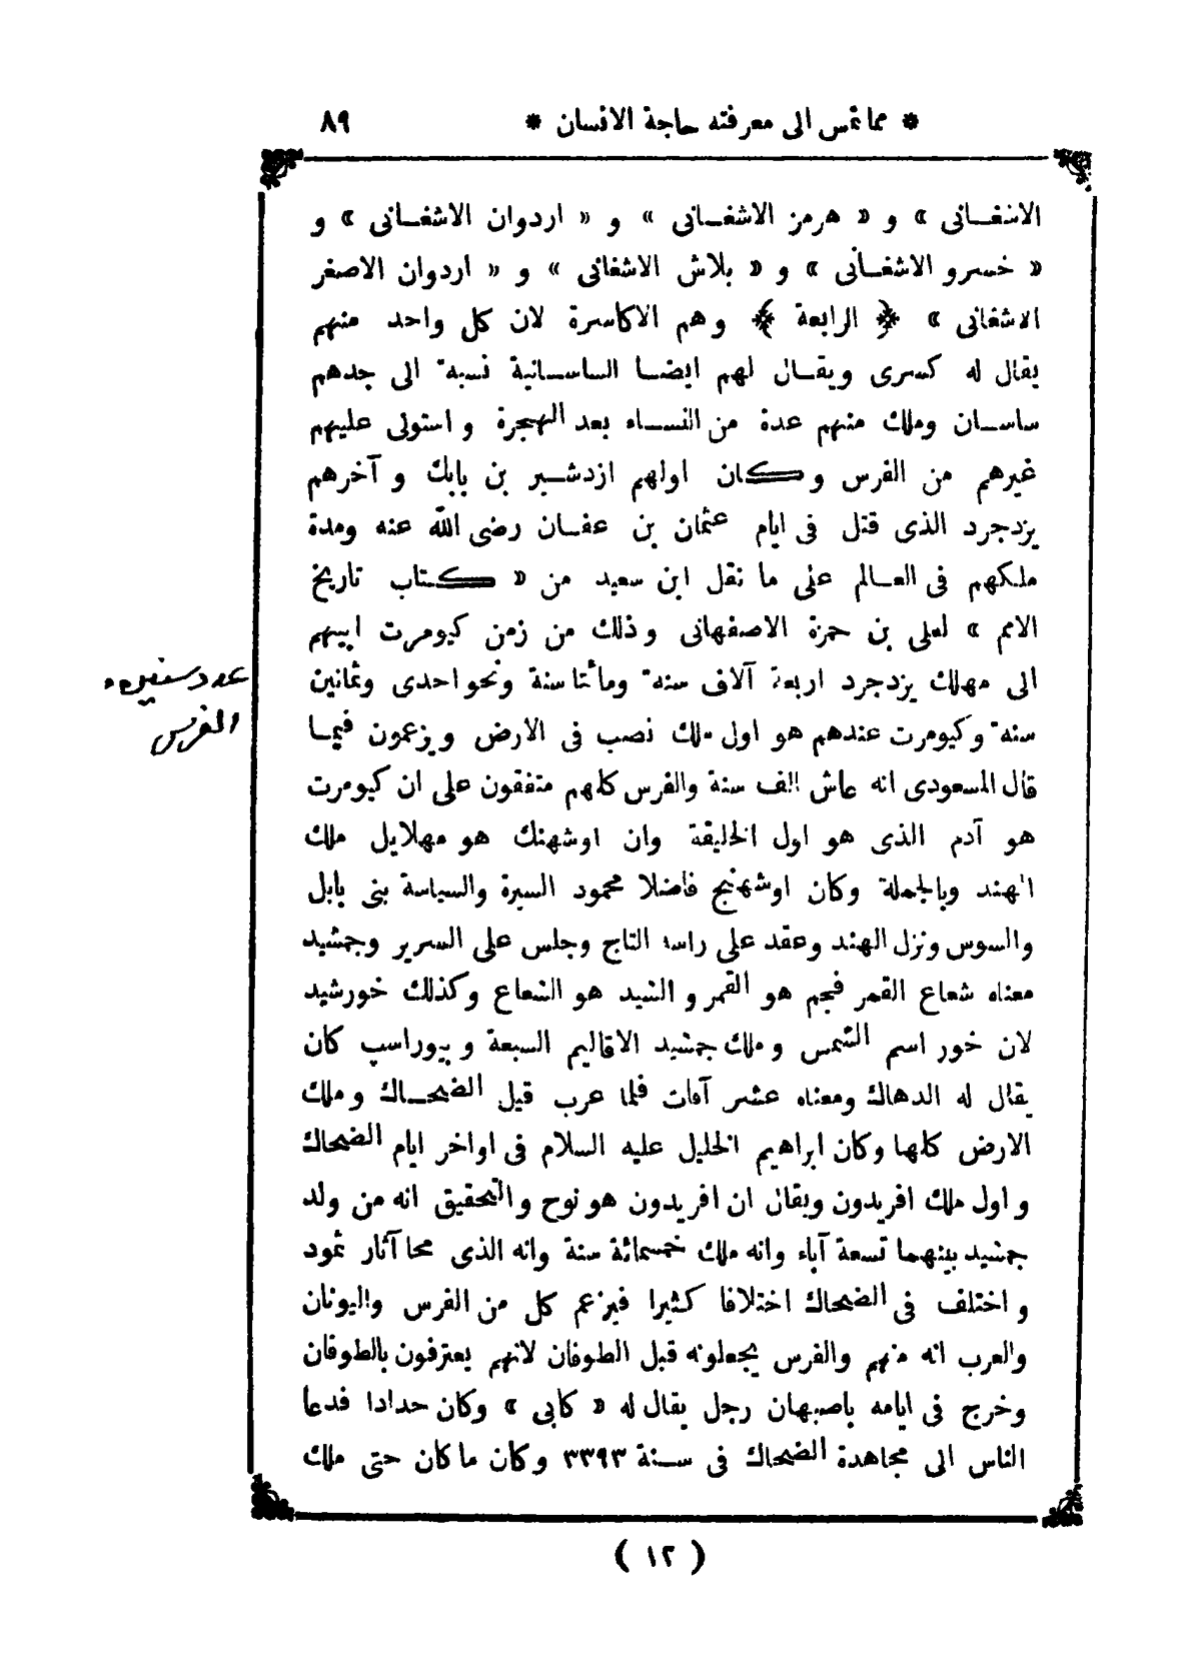 * مما تمس الى معرفته حاجة الانسان * ٨٩
الاشغـانى » و « هرمز الاشغـانى » و « اردوان الاشغـانى » و
« خسرو الاشغـانى » و « بلاش الاشغانى » و « اردوان الاصغر
الاشغانى » ﴿ الرابعة ﴾ وهم الاكاسرة لان كل واحد منهم
يقال له كسرى ويقـال لهم ايضـا الساسـانية نسبة الى جدهم
ساسـان وملك منهم عدة من النسـاء بعد الهجرة و استولى عليهم
غيرهم من الفرس وكان اولهم ازدشـير بن بابك و آخرهم
يزدجرد الذى قتل فى ايام عثمان بن عفـان رضى الله عنه ومدة
ملكهم فى العـالم على ما نقل ابن سعيد من « كتاب تاريخ
الامم » لعلى بن حمزة الاصفهانى وذلك من زمن كيومرت ابيهم
الى مهلك يزدجرد اربعة آلاف سنة ومأتا سنة ونحو احدى وثمانين
سنة وكيومرت عندهم هو اول ملك نصب فى الارض ويزعمون فيما
قال المسعودى انه عاش الف سنة والفرس كلهم متفقون على ان كيومرت
هو آدم الذى هو اول الخليقة وان اوشهنك هو مهلايل ملك
الهند وبالجملة وكان اوشهنج فاضلا محمود السيرة والسياسة بنى بابل
والسوس ونزل الهند وعقد على راسه التاج وجلس على السرير وجمشيد
معناه شعاع القمر فجم هو القمر و الشيد هو الشعاع وكذلك خورشيد
لان خور اسم الشمس وملك جمشيد الاقاليم السبعة و بيوراسب كان
يقال له الدهاك ومعناه عشر آفات فلما عرب قيل الضحـاك وملك
الارض كلها وكان ابراهيم الخليل عليه السلام فى اواخر ايام الضحاك
و اول ملك افريدون ويقال ان افريدون هو نوح و التحقيق انه من ولد
جمشيد بينهما تسعة آباء وانه ملك خمسمائة سنة وانه الذى محا آثار ثمود
و اختلف فى الضحاك اختلافا كثيرا فيزعم كل من الفرس واليونان
والعرب انه منهم والفرس يجعلونه قبل الطوفان لانهم يعترفون بالطوفان
وخرج فى ايامه باصبهان رجل يقال له « كابى » وكان حدادا فدعا
الناس الى مجاهدة الضحاك فى سـنة ٣٣٩٣ وكان ما كان حتى ملك
عدد سنين
الفرس
( ١٢ )